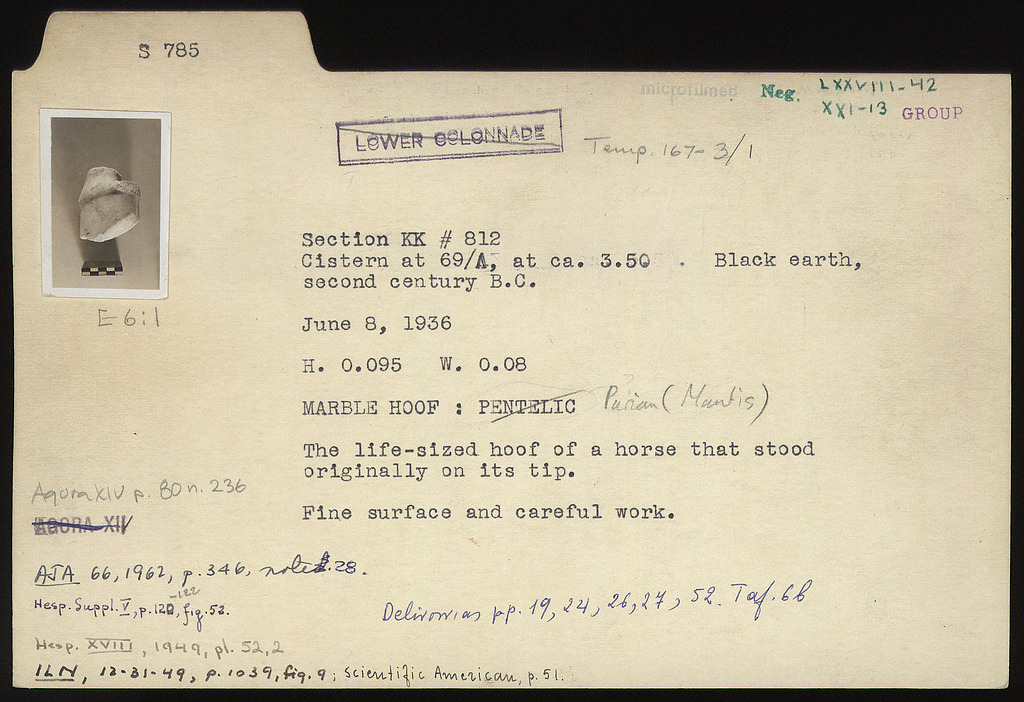 S 785
microfilmed
Neg. LXXVIII-42
XXI-13 GROUP
LOWER COLONNADE
Temp. 167-3/1
Section KK # 812
Cistern at 69/A, at ca. 3.50 . Black earth,
second century B.C.
E 6:1
June 8, 1936
H. 0.095 W. 0.08
MARBLE HOOF : PENTELIC Parian (Mantis)
The life-sized hoof of a horse that stood
originally on its tip.
Fine surface and careful work.
Agora XIV p. 80 n. 236
AGORA XIV
AJA 66, 1962, p. 346, note 28.
Hesp. Suppl. V, p. 120-122, fig. 52.
Delivorrias pp. 19, 24, 26, 27, 52. Taf. 6b
Hesp. XVIII, 1949, pl. 52,2
ILN, 12-31-49, p. 1039, fig. 9; Scientific American, p. 51.